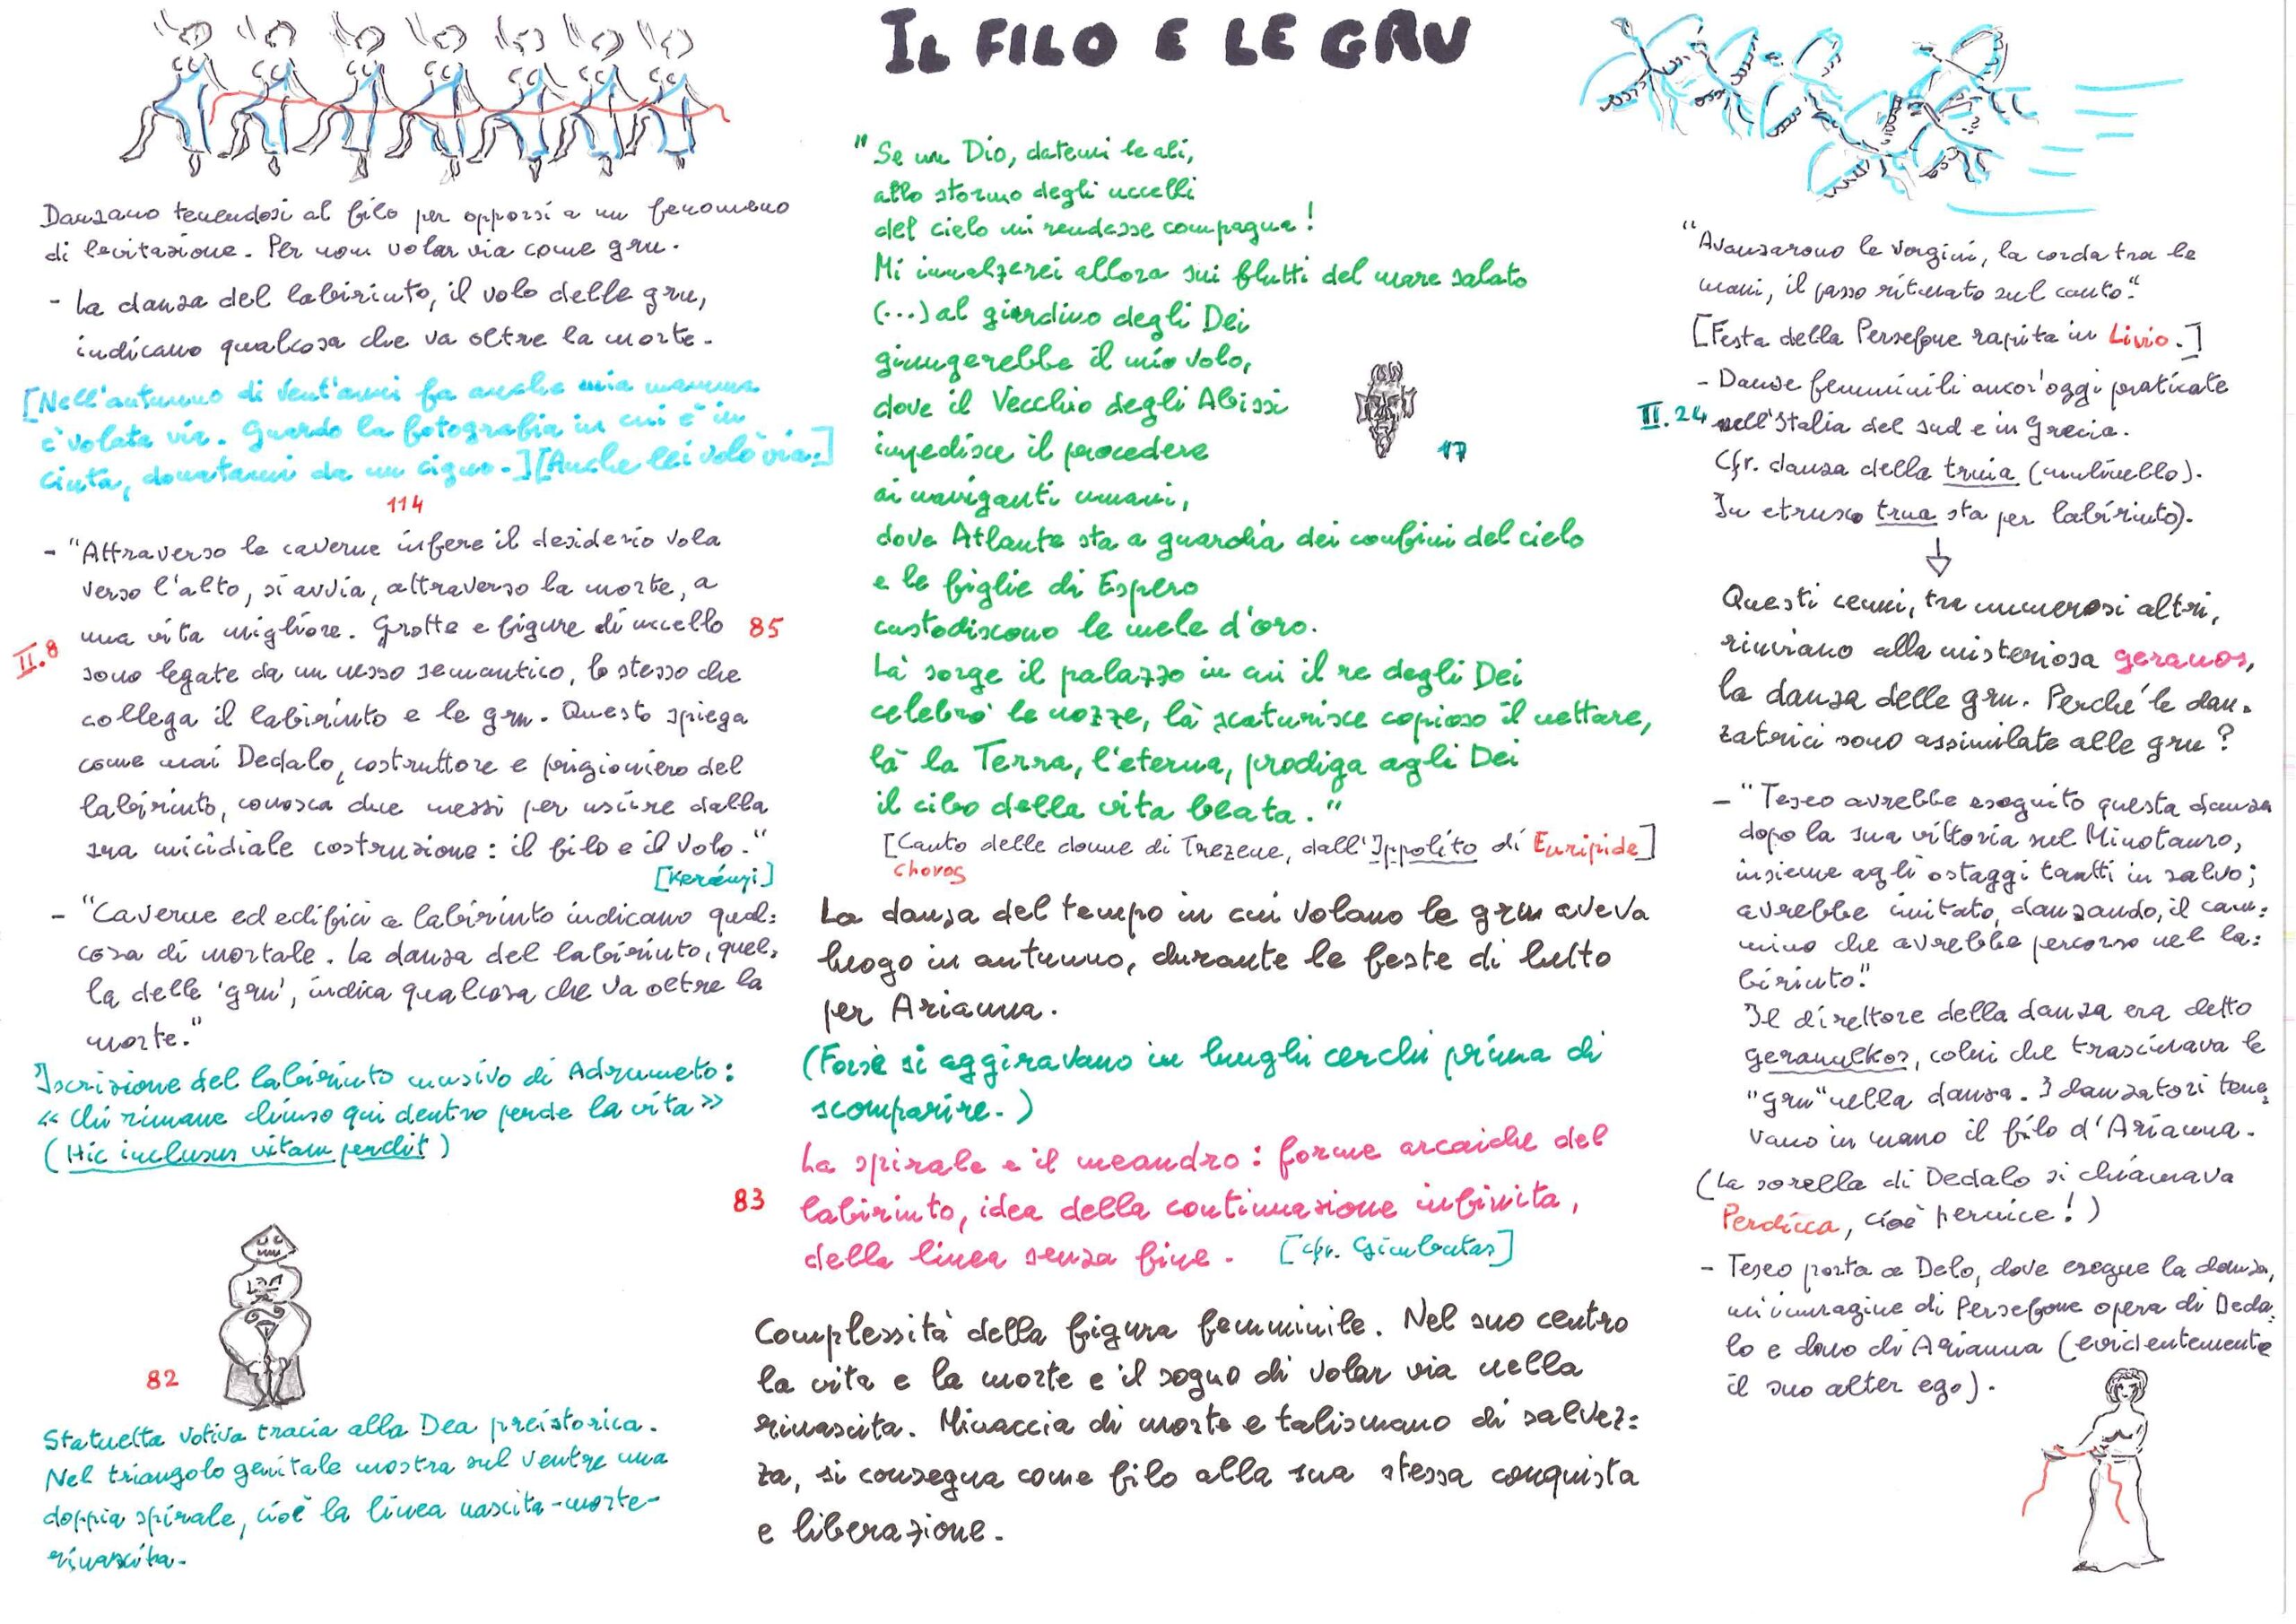 IL FILO E LE GRU
Danzano tenendosi al filo per opporsi a un fenomeno
di levitazione. Per non volar via come gru.
- La danza del labirinto, il volo delle gru,
indicano qualcosa che va oltre la morte.
[Nell'autunno di vent'anni fa anche mia mamma
è volata via. Guardo la fotografia in cui è in
cinta, donatami da un cigno.] [Anche lei volò via.]
114
- "Attraverso le caverne infere il desiderio vola
verso l'alto, si avvia, attraverso la morte, a
una vita migliore. Grotte e figure di uccello 85
II.8
sono legate da un nesso semantico, lo stesso che
collega il labirinto e le gru. Questo spiega
come mai Dedalo, costruttore e prigioniero del
labirinto, conosca due mezzi per uscire dalla
sua micidiale costruzione: il filo e il volo."
[Kerényi]
- "Caverne ed edifici a labirinto indicano qual=
cosa di mortale. La danza del labirinto, quel=
la delle 'gru', indica qualcosa che va oltre la
morte."
Iscrizione del labirinto musivo di Adrumeto:
« Chi rimane chiuso qui dentro perde la vita »
(Hic inclusus vitam perdit)
82
Statuetta votiva tracia alla Dea preistorica.
Nel triangolo genitale mostra sul ventre una
doppia spirale, cioè la linea nascita-morte-
rinascita.
"Se un Dio, datemi le ali,
allo stormo degli uccelli
del cielo mi rendesse compagna!
Mi innalzerei allora sui flutti del mare salato
(...) al giardino degli Dei
giungerebbe il mio volo,
dove il Vecchio degli Abissi
impedisce il procedere
17
ai naviganti umani,
dove Atlante sta a guardia dei confini del cielo
e le figlie di Espero
custodiscono le mele d'oro.
Là sorge il palazzo in cui il re degli Dei
celebrò le nozze, là scaturisce copioso il nettare,
là la Terra, l'eterna, prodiga agli Dei
il cibo della vita beata."
[Canto delle donne di Trezene, dall'Ippolito di Euripide]
Choros
La danza del tempo in cui volano le gru aveva
luogo in autunno, durante le feste di lutto
per Arianna.
(Forse si aggiravano in lunghi cerchi prima di
scomparire.)
La spirale e il meandro: forme arcaiche del
83 labirinto, idea della continuazione infinita,
della linea senza fine. [cfr. Gimbutas]
Complessità della figura femminile. Nel suo centro
la vita e la morte e il sogno di volar via nella
rinascita. Minaccia di morte e talismano di salvez=
za, si consegna come filo alla sua stessa conquista
e liberazione.
"Avanzarono le vergini, la corda tra le
mani, il passo ritmato sul canto."
[Festa della Persefone rapita in Livio.]
- Danze femminili ancor'oggi praticate
II.24 nell'Italia del sud e in Grecia.
Cfr. danza della truia (mulinello).
In etrusco trua sta per labirinto).
Questi cenni, tra numerosi altri,
rinviano alla misteriosa geranos,
la danza delle gru. Perché le dan=
zatrici sono assimilate alle gru?
- "Teseo avrebbe eseguito questa danza
dopo la sua vittoria sul Minotauro,
insieme agli ostaggi tratti in salvo;
avrebbe imitato, danzando, il cam=
mino che avrebbe percorso nel la=
birinto."
Il direttore della danza era detto
geranulkos, colui che trascinava le
"gru" nella danza. I danzatori tene=
vano in mano il filo d'Arianna.
(La sorella di Dedalo si chiamava
Perdicca, cioè pernice!)
- Teseo porta a Delo, dove esegue la danza,
un'immagine di Persefone opera di Deda=
lo e dono di Arianna (evidentemente
il suo alter ego).